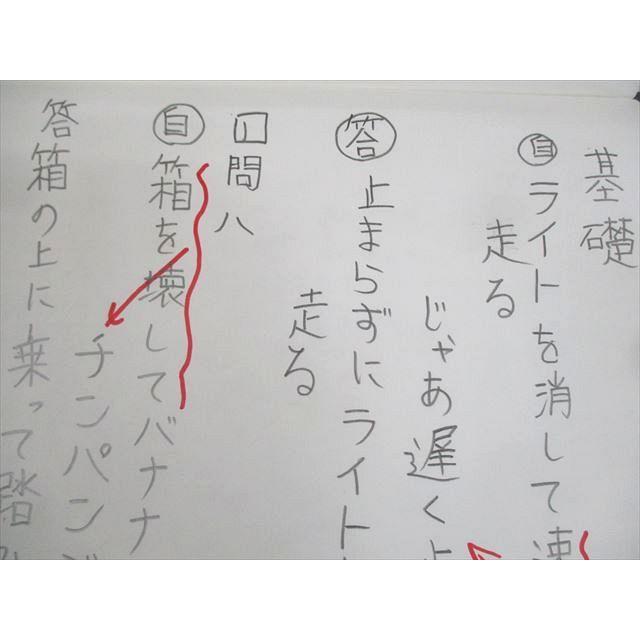 基礎
自ライトを消して速
走る
じゃあ遅く
答止まらずにライト
走る
口問八
自箱を壊してバナナ
チンパンジ
答箱の上に乗って踏